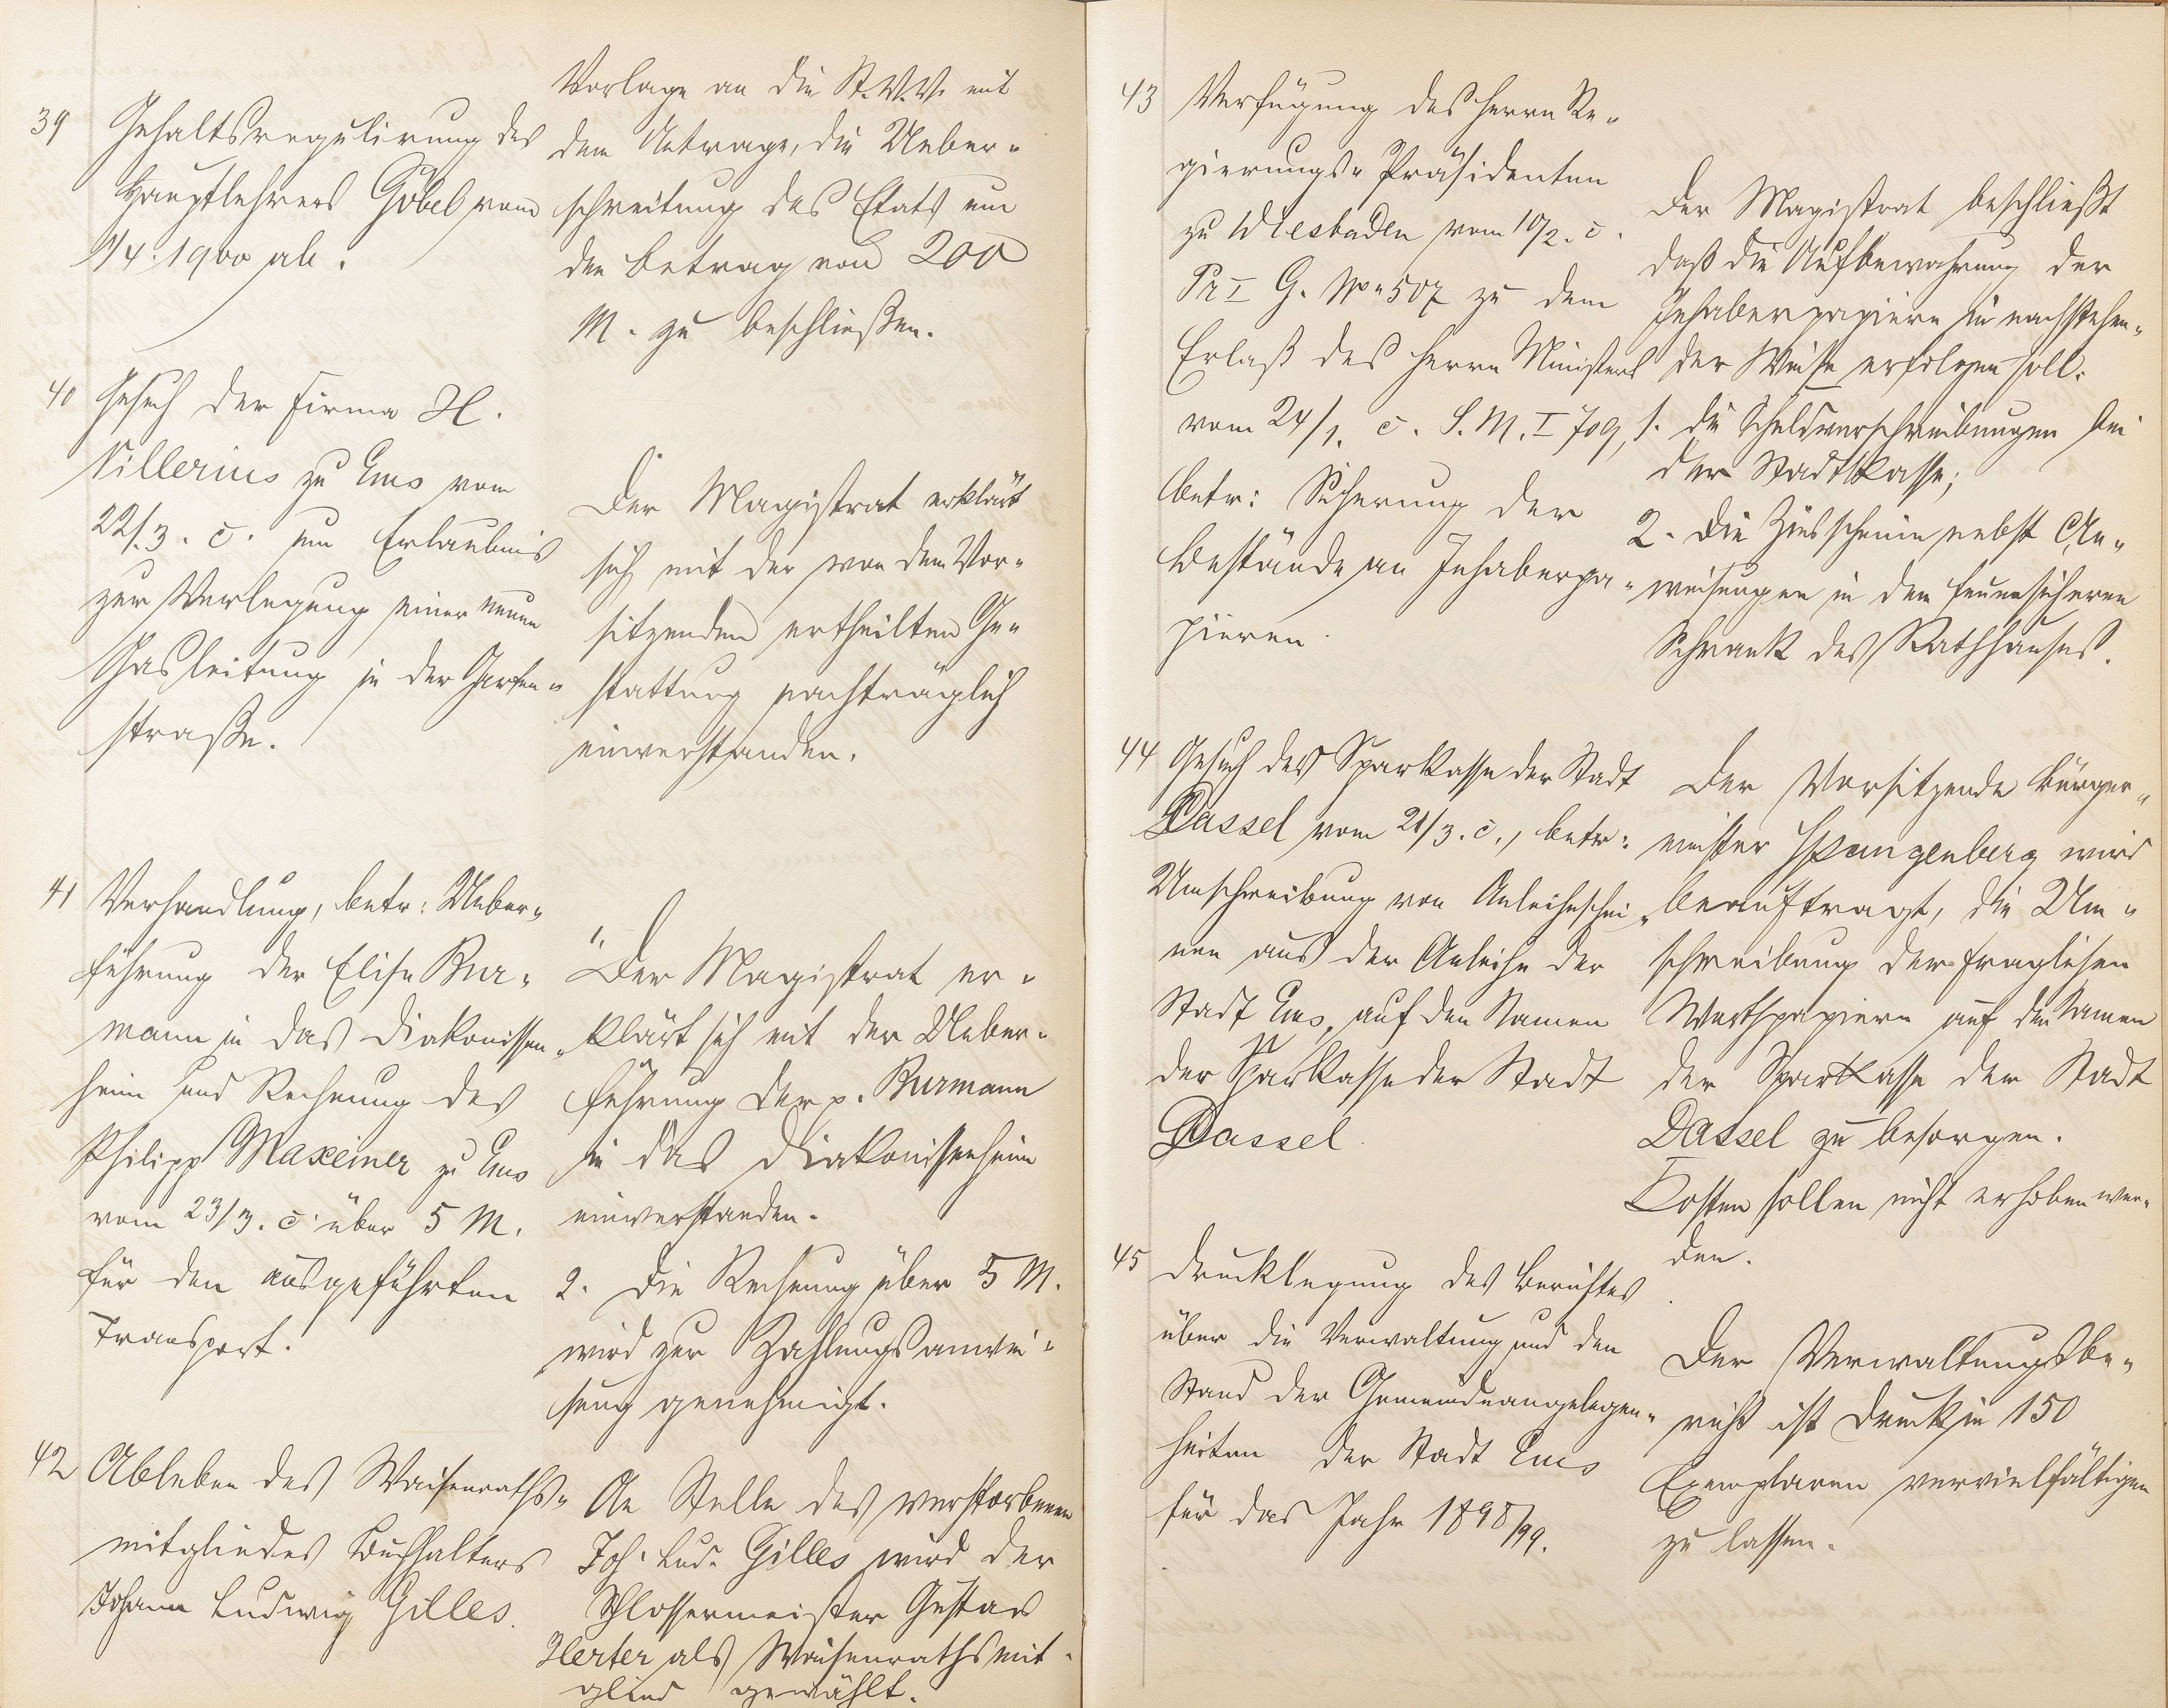 39 Gehaltsregulirung des
Hauptlehrers Göbel vom
1/4. 1900 ab.
Vorlage an die St.V.V. mit
dem Antrage, die Ueber-
schreitung des Etats um
den Betrag von 200
M. zu beschließen.
40 Gesuch der Firma H.
Villerius zu Ems vom
22/3. c. um Erlaubnis
zur Verlegung einer neuen
Gasleitung in der Grafen-
straße.
Der Magistrat erklärt
sich mit der von dem Vor-
sitzenden ertheilten Ge-
stattung nachträglich
einverstanden.
41 Verhandlung, betr: Ueber-
führung der Elise Bur-
mann in das Diakonissen-
heim und Rechnung des
Philipp Maxeiner zu Ems
vom 23/3. c. über 5 M.
für den ausgeführten
Transport.
1. Der Magistrat er-
klärt sich mit der Ueber-
führung der p. Burmann
in das Diakonissenheim
einverstanden.
2. Die Rechnung über 5 M.
wird zur Zahlungsanwei-
sung genehmigt.
42 Ableben des Waisenraths-
mitgliedes Buchhalters
Johann Ludwig Gilles.
An Stelle des verstorbenen
Joh. Lud. Gilles wird der
Schlossermeister Gustav
Herter als Waisenrathsmit-
glied gewählt.
43 Verfügung des Herrn Re-
gierungs-Präsidenten
zu Wiesbaden vom 10/2. c.
Pr I G. No 507 zu dem
Erlaß des Herrn Ministers
vom 24/1. c. S.M. I 709,
betr: Sicherung der
Bestände an Inhaberpa-
pieren.
Der Magistrat beschließt
daß die Aufbewahrung der
Inhaberpapiere in nachstehen-
der Weise erfolgen soll:
1. die Schuldverschreibungen bei
der Stadtkasse;
2. die Zinsscheine nebst An-
weisungen in dem feuersicheren
Schrank des Rathhauses.
44 Gesuch der Sparkasse der Stadt
Dassel vom 21/3. c., betr:
Umschreibung von Anleiheschei-
nen aus der Anleihe der
Stadt Ems, auf den Namen
der Sparkasse der Stadt
Dassel
Der Vorsitzende Bürger-
meister Spangenberg wird
beauftragt, die Um-
schreibung der fraglichen
Werthpapiere auf den Namen
der Sparkasse der Stadt
Dassel zu besorgen.
Kosten sollen nicht erhoben wer-
den.
45 Drucklegung des Berichtes
über die Verwaltung und den
Stand der Gemeindeangelegen-
heiten der Stadt Ems
für das Jahr 1898/99.
Der Verwaltungsbe-
richt ist Druck in 150
Exemplaren vervielfältigen
zu lassen.